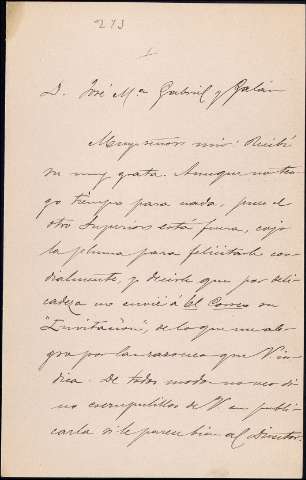 273
I
D. José Mª Gabriel y Galán
Muy señor mio: Recibí
su muy grata. Aunque no ten-
go tiempo para nada, pues el
otro Superior está fuera, cojo
la pluma para felicitarle cor-
dialmente, y decirle que por deli-
cadeza no envié á El Correo su
"Invitación", de lo que me ale-
gro por las razones que V. in-
dica. De todos modos no veo di
no escrupulillos de V. en publi-
carla si le parece bien al Director.